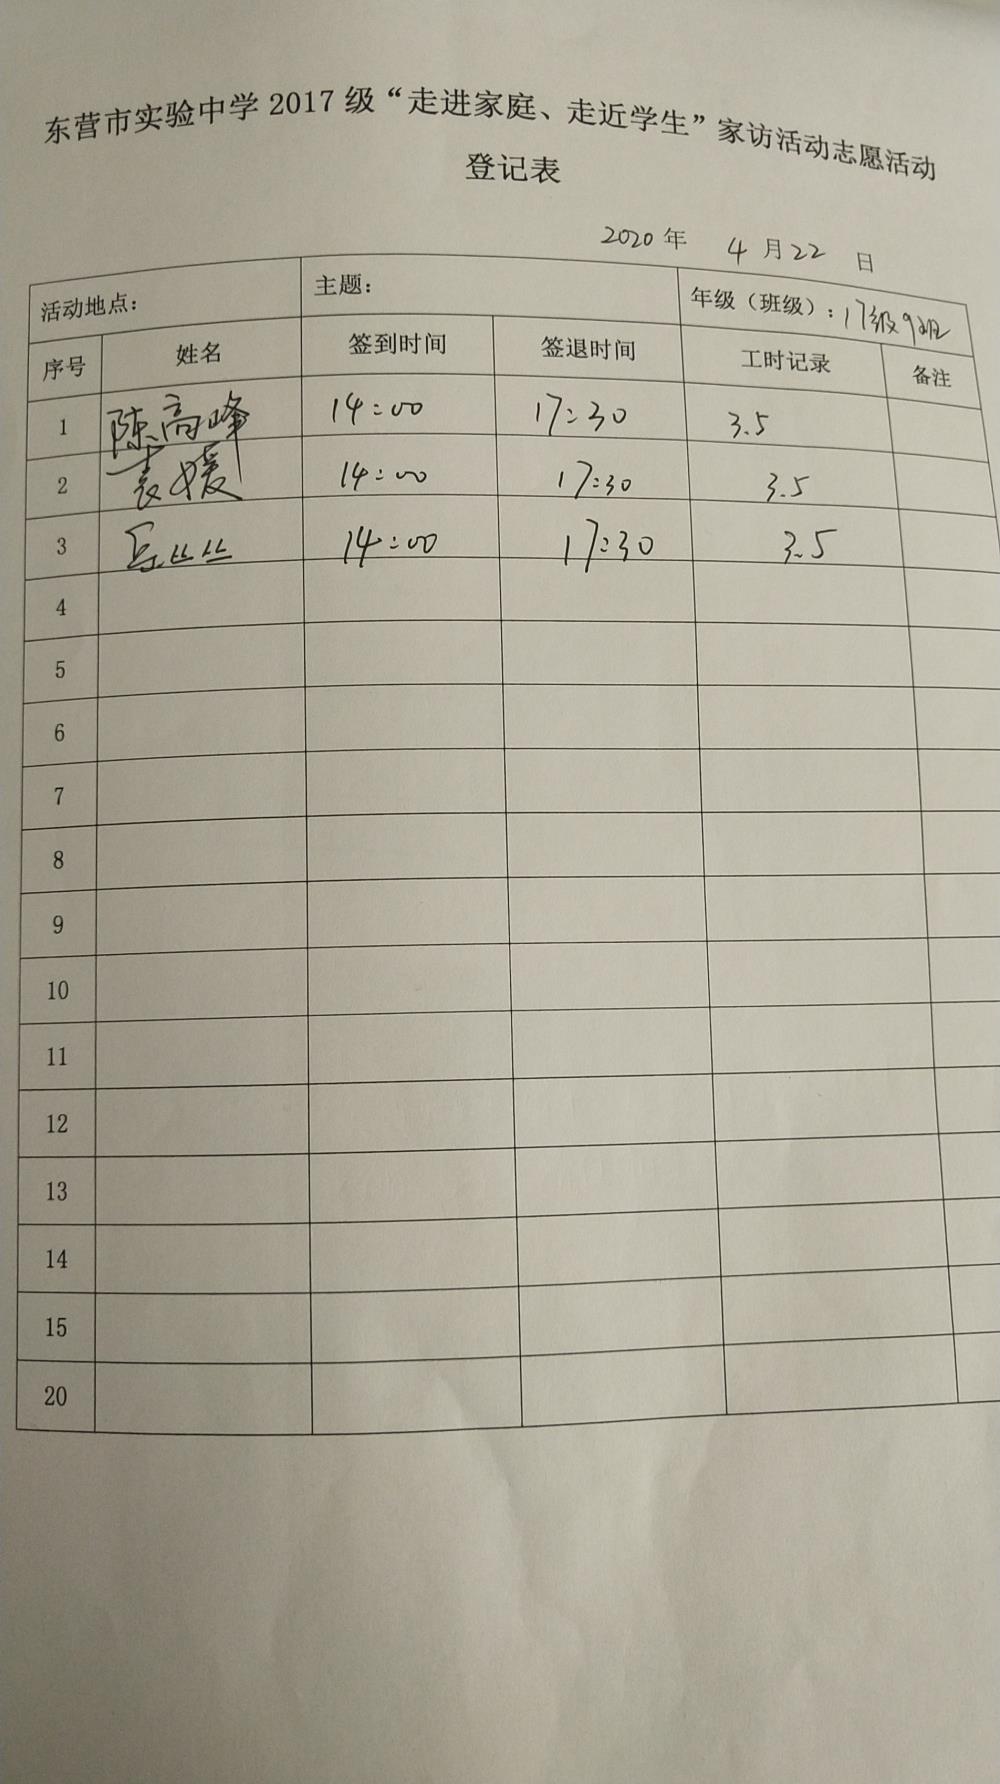 东营市实验中学2017级“走进家庭、走近学生”家访活动志愿活动
登记表
2020年 4月22日
活动地点： 主题： 年级（班级）：17级9班
序号 姓名 签到时间 签退时间 工时记录 备注
1 陈高峰 14:00 17:30 3.5
2 袁媛 14:00 17:30 3.5
3 丝丝 14:00 17:30 3.5
4
5
6
7
8
9
10
11
12
13
14
15
20